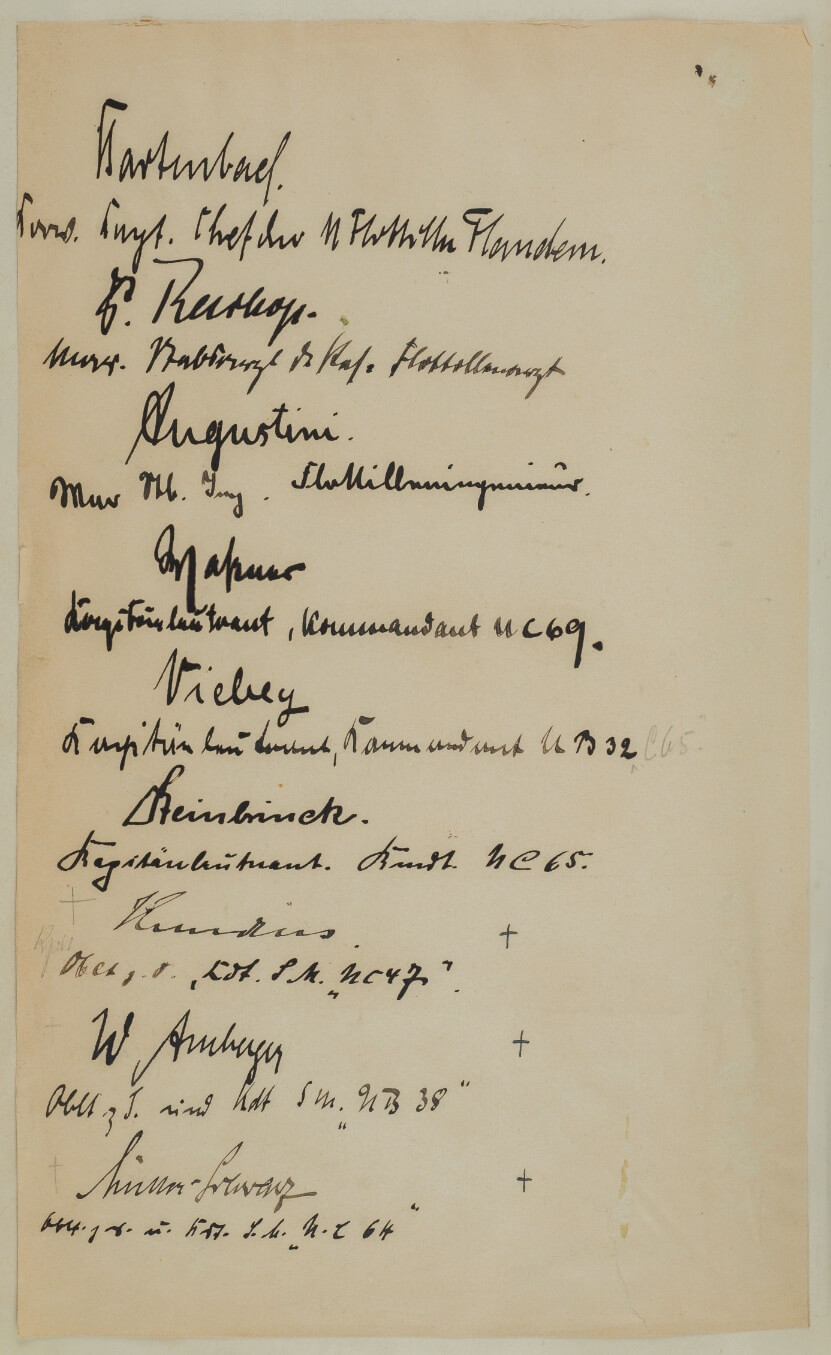 Bartenbach.
Korv. Kapt. Chef der U Flottille Flandern.
Mar. Stabsarzt d. Res. Flottillenarzt
Augustini.
Mar Stb. Ing. Flottilleningenieur.
Waßner
Kapitänleutnant, Kommandant UC69.
Viebeg
Kapitänleutnant, Kommandant UB 32 C65
Steinbrinck.
Kapitänleutnant. Kmdt. UC 65.
Hundius
Oblt z. S., Kdt. S.M. „UC47".
W Amberger
Oblt z S. und Kdt SM. „UB 38"
Müller-Schwarz
Oblt. z. S. u. Kdt. S.M. „U.C 64"